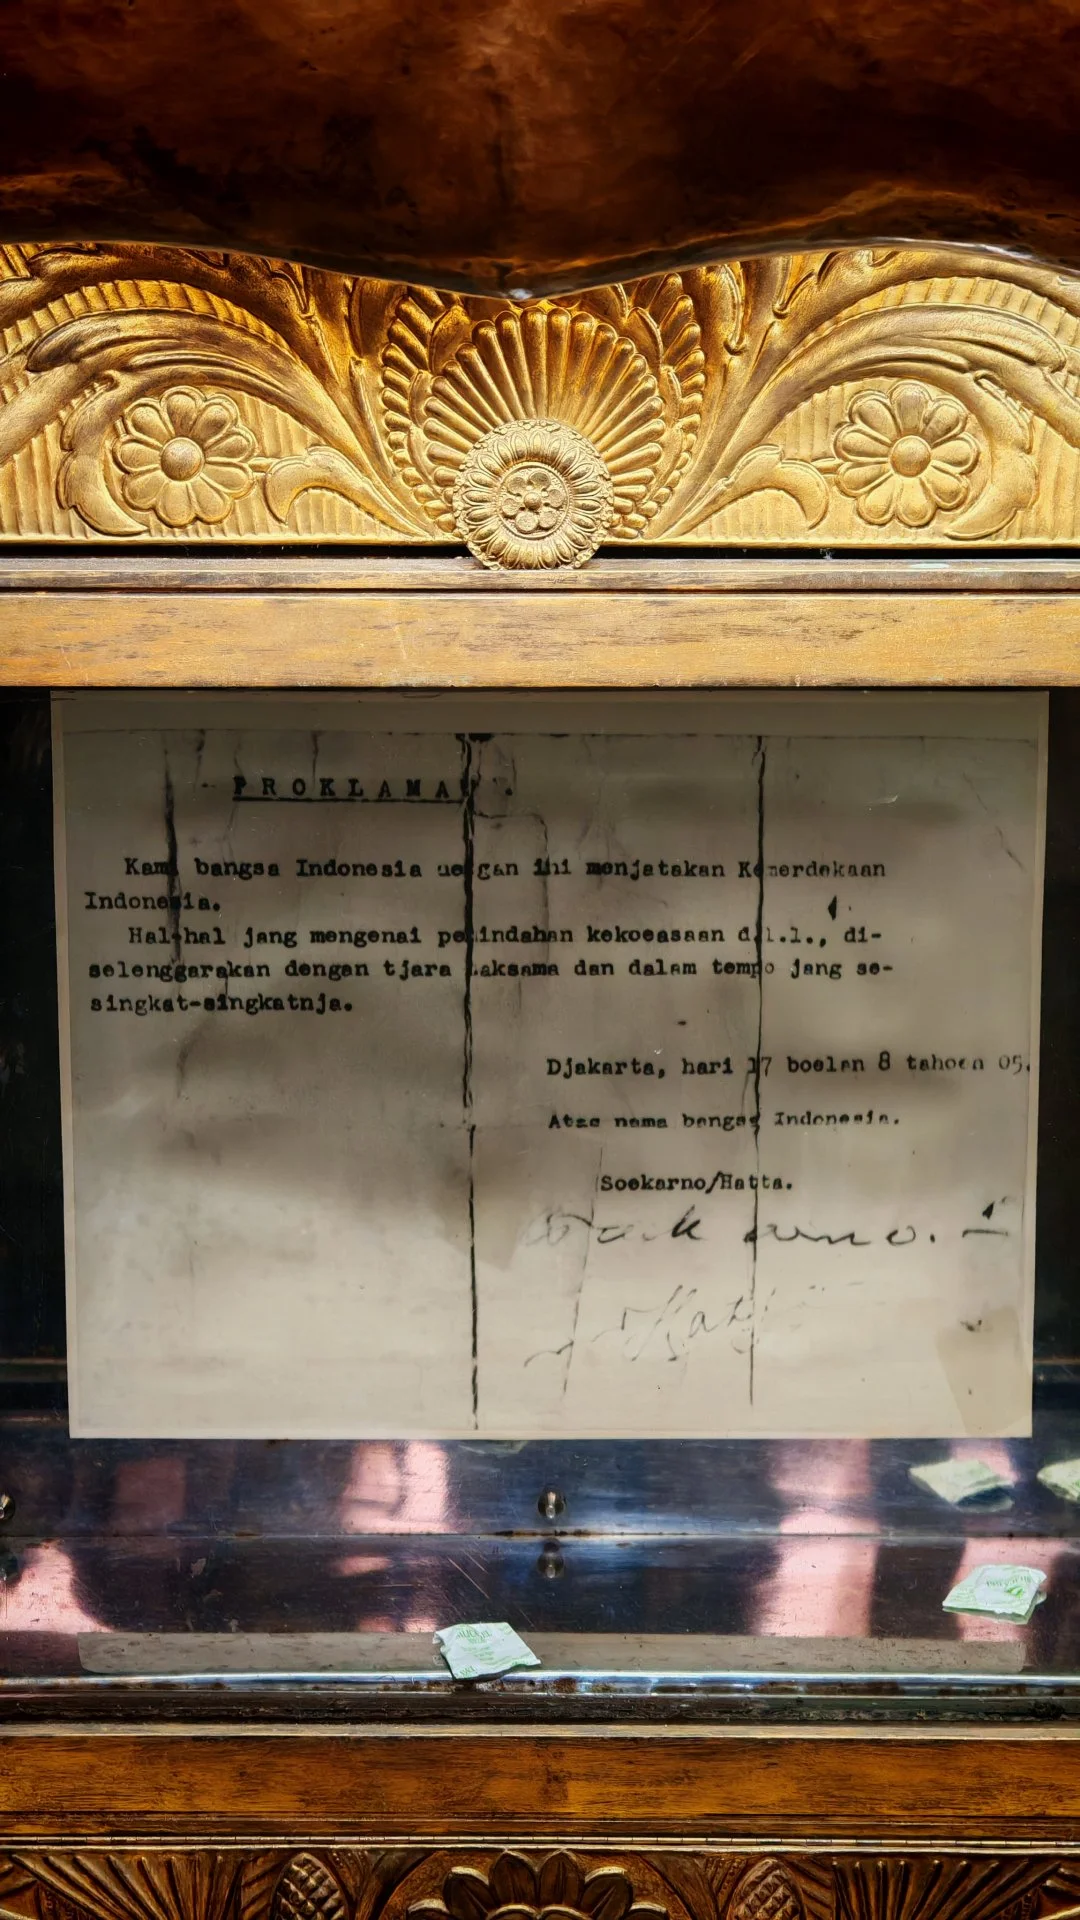 PROKLAMASI.
Kami bangsa Indonesia dengan ini menjatakan Kemerdekaan
Indonesia.
Hal-hal jang mengenai pemindahan kekoeasaan d.l.l., di-
selenggarakan dengan tjara saksama dan dalam tempo jang se-
singkat-singkatnja.
Djakarta, hari 17 boelan 8 tahoen 05.
Atas nama bangsa Indonesia.
Soekarno/Hatta.